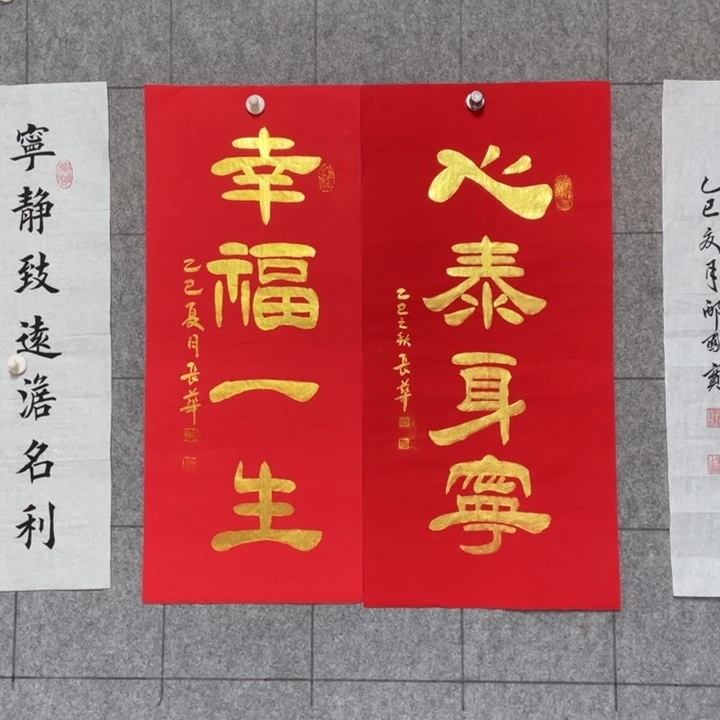 寧静致遠澹名利
幸福一生
乙巳夏月長華
心泰身寧
乙巳之秋長華
乙巳夏月